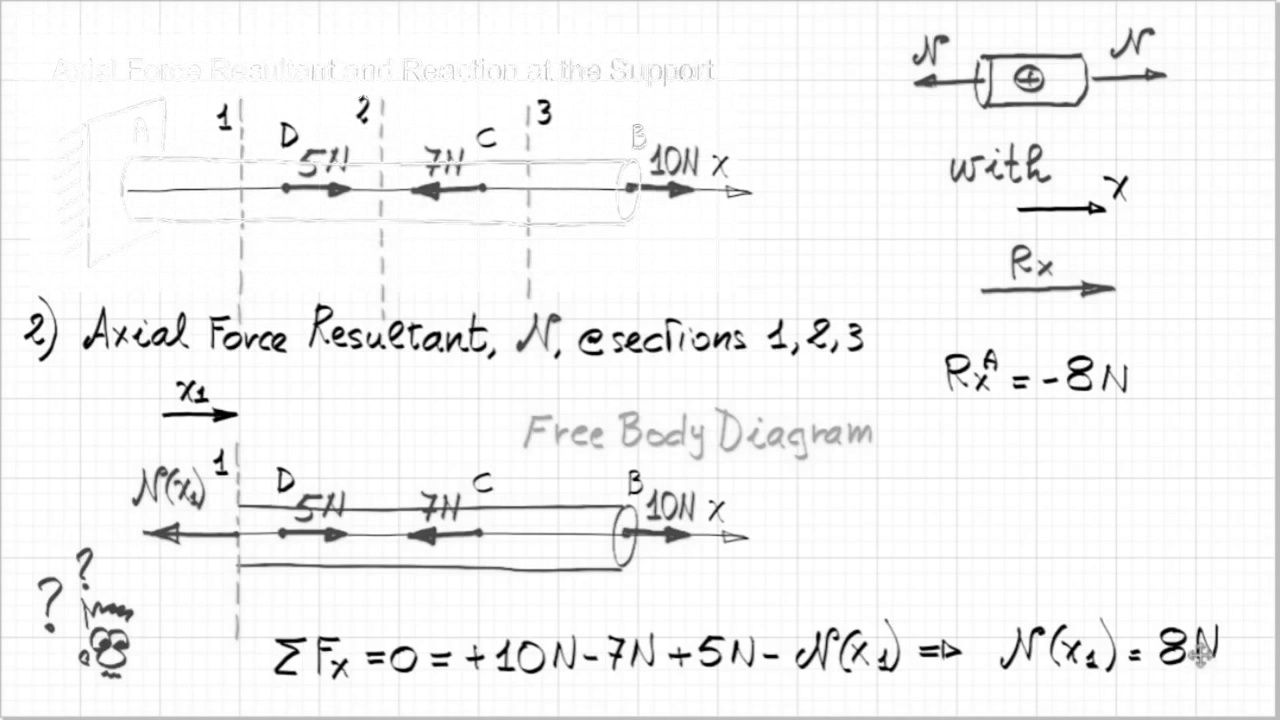 Axial Force Resultant and Reaction at the Support
N N
A 1 D 5N 2 7N C 3 B 10N x
with
x
Rx
2) Axial Force Resultant, N, @sections 1,2,3
RxA = -8N
x1
Free Body Diagram
N(x1) 1 D 5N 7N C B 10N x
? ?
ΣFx = 0 = +10N-7N+5N- N(x1) => N(x1) = 8N